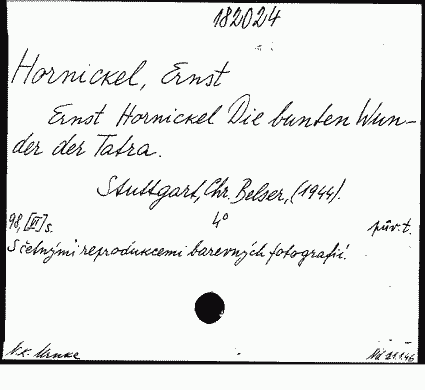 182024
Hornickel, Ernst
Ernst Hornickel Die bunten Wun-
der der Tatra.
Stuttgart, Chr. Belser, (1944).
98, [VI] s. 4° pův. t.
S četnými reprodukcemi barevných fotografií.
N.k.